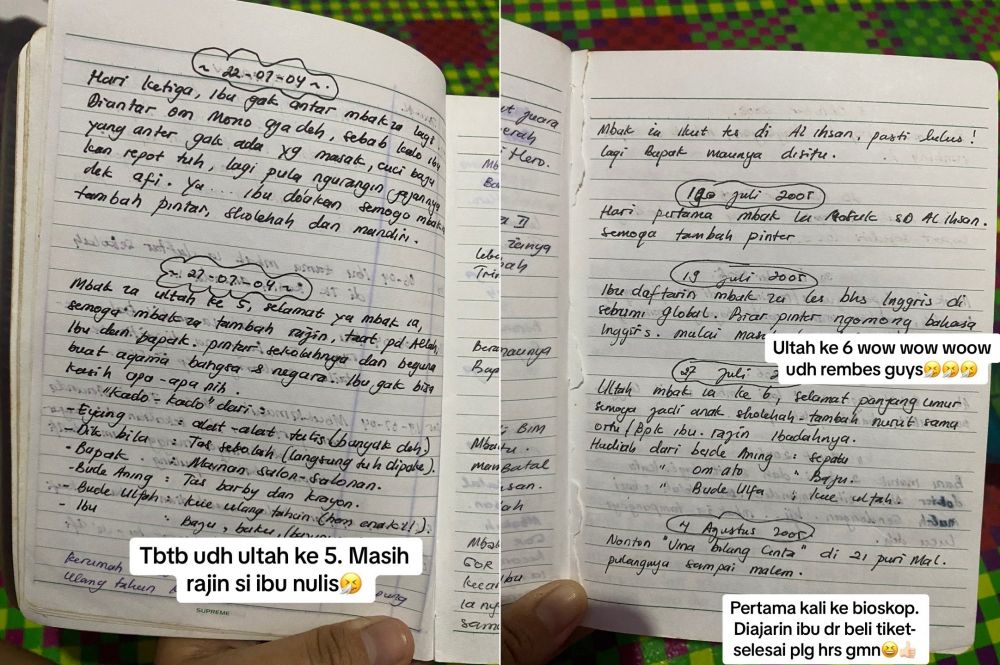 ~ 22-07-04 ~
Hari ketiga, Ibu gak antar mbak za lagi.
Diantar om Mono aja deh, sebab kalo ibu
yang anter gak ada yg masak, cuci baju
kan repot tuh, lagi pula ngurangin jajannya
dek afi. ya.... ibu doakan semoga mbak
tambah pintar, sholehah dan mandiri.
~ 27-07-04 ~
Mbak za ultah ke 5, selamat ya mbak ia,
semoga mbak za tambah rajin, taat pd Allah,
Ibu dan bapak. pintar sekolahnya dan beguna
buat agama bangsa & negara. Ibu gak bisa
kasih apa-apa nih.
"Kado-kado" dari :
- Eyang : alat-alat tulis (banyak deh).
- Dik bila : Tas sekolah (langsung tuh dipake).
- Bapak : Mainan salon-salonan.
- Bude Aning : Tas barby dan krayon.
- Bude Ulfah : kue ulang tahun (hem enak!!).
- Ibu : Baju, buku,
kerumah
ulang tahun
SUPREME
Tbtb udh ultah ke 5. Masih
rajin si ibu nulis🤧
Mbak ia ikut tes di Al Ihsan, pasti lulus!
lagi Bapak maunya disitu.
juli 2005
Hari pertama mbak ia Masuk SD AL Ihsan.
Semoga tambah pinter
19 juli 2005
Ibu daftarin mbak za les bhs Inggris di
sebumi global. Biar pinter ngomong bahasa
Inggris. mulai
Ultah ke 6 wow wow woow
udh rembes guys🤧🤧🤧
27 juli
Ultah mbak ia ke 6, selamat panjang umur
semoga jadi anak sholehah tambah nurut sama
ortu/Bpk ibu. rajin ibadahnya.
Hadiah dari bude Aning : sepatu
" om ato " Baju.
" Bude Ulfa : kue ultah.
4 Agustus 2005
Nonton "Una bilang Cinta" di 21 puri Mal.
pulangnya sampai malem.
Pertama kali ke bioskop.
Diajarin ibu dr beli tiket-
selesai plg hrs gmn😆👍🏻